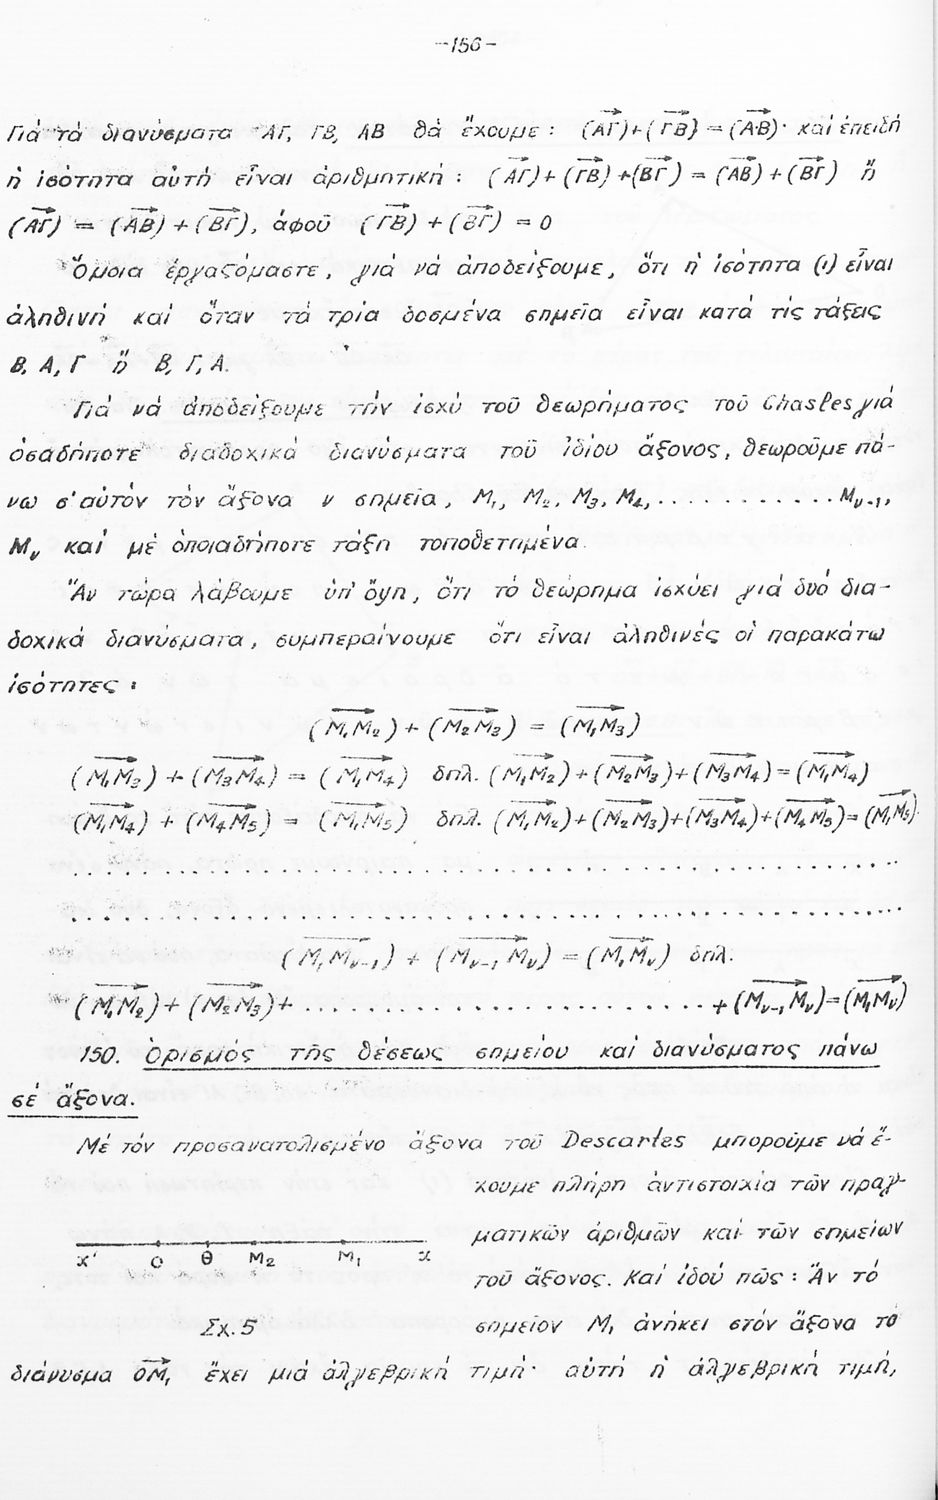 -156-
Γιά τά διανύσματα ΑΓ, ΓΒ, ΑΒ θά ἔχουμε : (ΑΓ)+(ΓΒ) = (ΑΒ)· καί ἐπειδή
ἡ ἰσότητα αὐτή εἶναι ἀριθμητική : (ΑΓ)+(ΓΒ)+(ΒΓ) = (ΑΒ)+(ΒΓ) ἤ
(ΑΓ) = (ΑΒ)+(ΒΓ), ἀφοῦ (ΓΒ)+(ΒΓ) = 0
Ὅμοια ἐργαζόμαστε, γιά νά ἀποδείξουμε, ὅτι ἡ ἰσότητα (ι) εἶναι
ἀληθινή καί ὅταν τά τρία δοσμένα σημεῖα εἶναι κατά τίς τάξεις
Β, Α, Γ ἤ Β, Γ, Α.
Γιά νά ἀποδείξουμε τήν ἰσχύ τοῦ θεωρήματος τοῦ Chasles γιά
ὁσαδήποτε διαδοχικά διανύσματα τοῦ ἰδίου ἄξονος, θεωροῦμε πά-
νω σ' αὐτόν τόν ἄξονα ν σημεία, Μ₁, Μ₂, Μ₃, Μ₄, ............Μν-1,
Μν καί μέ ὁποιαδήποτε τάξη τοποθετημένα.
Ἄν τώρα λάβουμε ὑπ' ὄψη, ὅτι τό θεώρημα ἰσχύει γιά δυό δια-
δοχικά διανύσματα, συμπεραίνουμε ὅτι εἶναι ἀληθινές οἱ παρακάτω
ἰσότητες :
(Μ₁Μ₂)+(Μ₂Μ₃) = (Μ₁Μ₃)
(Μ₁Μ₃)+(Μ₃Μ₄) = (Μ₁Μ₄) δηλ. (Μ₁Μ₂)+(Μ₂Μ₃)+(Μ₃Μ₄)=(Μ₁Μ₄)
(Μ₁Μ₄)+(Μ₄Μ₅) = (Μ₁Μ₅) δηλ. (Μ₁Μ₂)+(Μ₂Μ₃)+(Μ₃Μ₄)+(Μ₄Μ₅)=(Μ₁Μ₅).
(Μ₁Μν-1)+(Μν-1Μν) = (Μ₁Μν) δηλ.
(Μ₁Μ₂)+(Μ₂Μ₃)+ ..............................+(Μν-1Μν)=(Μ₁Μν)
150. Ὁρισμός τῆς θέσεως σημείου καί διανύσματος πάνω
σέ ἄξονα.
Μέ τόν προσανατολισμένο ἄξονα τοῦ Descartes μποροῦμε νά ἔ-
χουμε πλήρη ἀντιστοιχία τῶν πραγ-
ματικῶν ἀριθμῶν καί τῶν σημείων
τοῦ ἄξονος. Καί ἰδού πῶς : Ἄν τό
σημεῖον Μ₁ ἀνήκει στόν ἄξονα τό
x' Ο Θ Μ₂ Μ₁ x
Σχ. 5
διάνυσμα ΟΜ₁ ἔχει μιά ἀλγεβρική τιμή· αὐτή ἡ ἀλγεβρική τιμή,